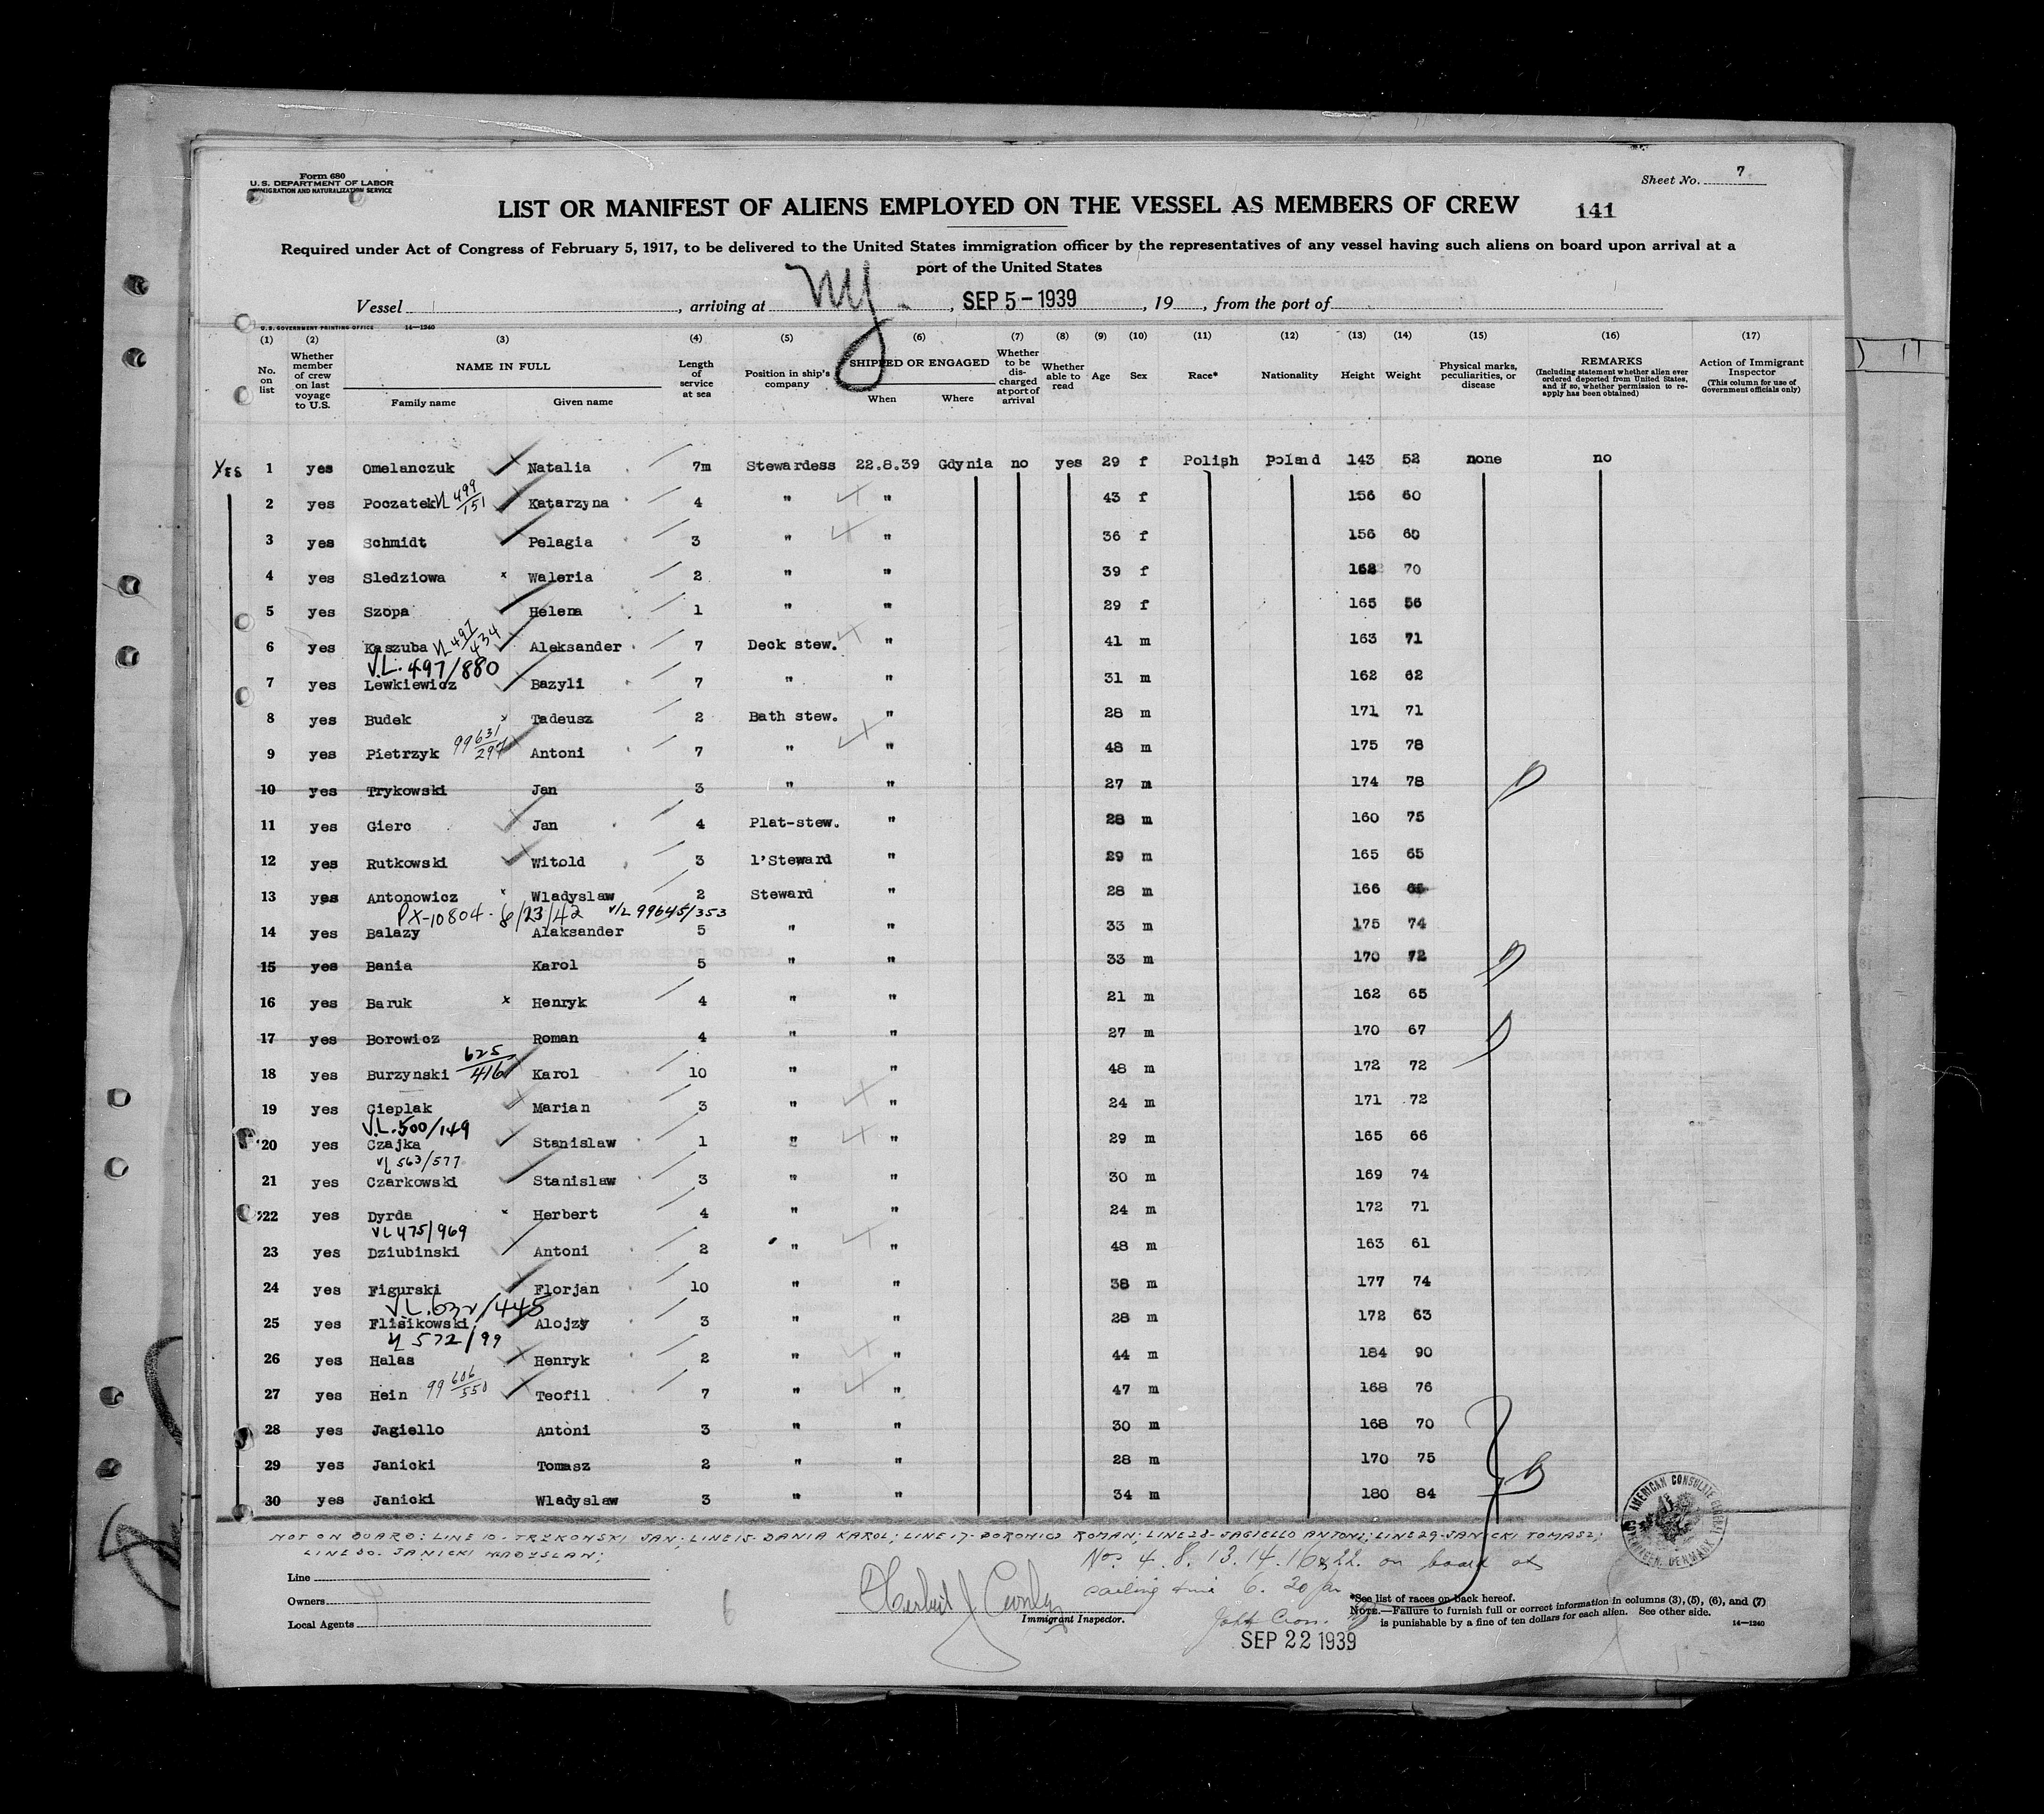 Form 680
U.S. DEPARTMENT OF LABOR
IMMIGRATION AND NATURALIZATION SERVICE
Sheet No. 7
LIST OR MANIFEST OF ALIENS EMPLOYED ON THE VESSEL AS MEMBERS OF CREW 141
Required under Act of Congress of February 5, 1917, to be delivered to the United States immigration officer by the representatives of any vessel having such aliens on board upon arrival at a
port of the United States
Vessel , arriving at NY. , SEP 5 - 1939 , 19 , from the port of
U.S. GOVERNMENT PRINTING OFFICE 14—1240
(1) (2) (3) (4) (5) (6) (7) (8) (9) (10) (11) (12) (13) (14) (15) (16) (17)
No. on list
Whether member of crew on last voyage to U.S.
NAME IN FULL
Family name
Given name
Length of service at sea
Position in ship's company
SHIPPED OR ENGAGED
When
Where
Whether to be discharged at port of arrival
Whether able to read
Age
Sex
Race*
Nationality
Height
Weight
Physical marks, peculiarities, or disease
REMARKS
(Including statement whether alien ever ordered deported from United States, and if so, whether permission to reapply has been obtained)
Action of Immigrant Inspector
(This column for use of Government officials only)
YES 1 yes Omelanczuk Natalia 7m Stewardess 22.8.39 Gdynia no yes 29 f Polish Poland 143 52 none no
2 yes Poczatek VL 499/151 Katarzyna 4 " " 43 f 156 60
3 yes Schmidt Pelagia 3 " " 36 f 156 60
4 yes Sledziowa x Waleria 2 " " 39 f 162 70
5 yes Szopa Helena 1 " " 29 f 165 56
6 yes Kaszuba VL 497/434 Aleksander 7 Deck stew. " 41 m 163 71
V.L. 497/880
7 yes Lewkiewicz Bazyli 7 " " 31 m 162 62
8 yes Budek x Tadeusz 2 Bath stew. " 28 m 171 71
9 yes Pietrzyk 99631/297 Antoni 7 " " 48 m 175 78
10 yes Trykowski Jan 3 " " 27 m 174 78
11 yes Gierc Jan 4 Plat-stew. " 28 m 160 75
12 yes Rutkowski Witold 3 l'Steward " 29 m 165 65
13 yes Antonowicz x Wladyslaw 2 Steward " 28 m 166
PX-10804- 6/23/42 V/L 99645/353
14 yes Balazy Alaksander 5 " " 33 m 175 74
15 yes Bania Karol 5 " " 33 m 170 72
16 yes Baruk x Henryk 4 " " 21 m 162 65
17 yes Borowicz Roman 4 " " 27 m 170 67
18 yes Burzynski 625/416 Karol 10 " " 48 m 172 72
19 yes Cieplak Marian 3 " " 24 m 171 72
V.L. 500/149
20 yes Czajka Stanislaw 1 " " 29 m 165 66
VL 563/577
21 yes Czarkowski Stanislaw 3 " " 30 m 169 74
22 yes Dyrda x Herbert 4 " " 24 m 172 71
VL 475/969
23 yes Dziubinski Antoni 2 " " 48 m 163 61
24 yes Figurski Florjan 10 " " 38 m 177 74
V.L. 632/445
25 yes Flisikowski Alojzy 3 " " 28 m 172 63
572/99
26 yes Halas Henryk 2 " " 44 m 184 90
27 yes Hein 99 606/550 Teofil 7 " " 47 m 168 76
28 yes Jagiello Antoni 3 " " 30 m 168 70
29 yes Janicki Tomasz 2 " " 28 m 170 75
30 yes Janicki Wladyslaw 3 " " 34 m 180 84
NOT ON BOARD: LINE 10- TRZKOWSKI JAN; LINE 15- BANIA KAROL; LINE 17- BOROWICS ROMAN; LINE 28- JAGIELLO ANTONI; LINE 29- JANICKI TOMASZ;
LINE 30. JANICKI WADYSLAW;
Nos 4. 8. 13. 14. 16 & 22. on board at
sailing time 6. 20 pm
AMERICAN CONSULATE GENERAL COPENHAGEN, DENMARK
Line
Owners
Local Agents
6
Immigrant Inspector.
SEP 22 1939
*See list of races on back hereof.
NOTE.—Failure to furnish full or correct information in columns (3), (5), (6), and (7)
is punishable by a fine of ten dollars for each alien. See other side.
14—1240